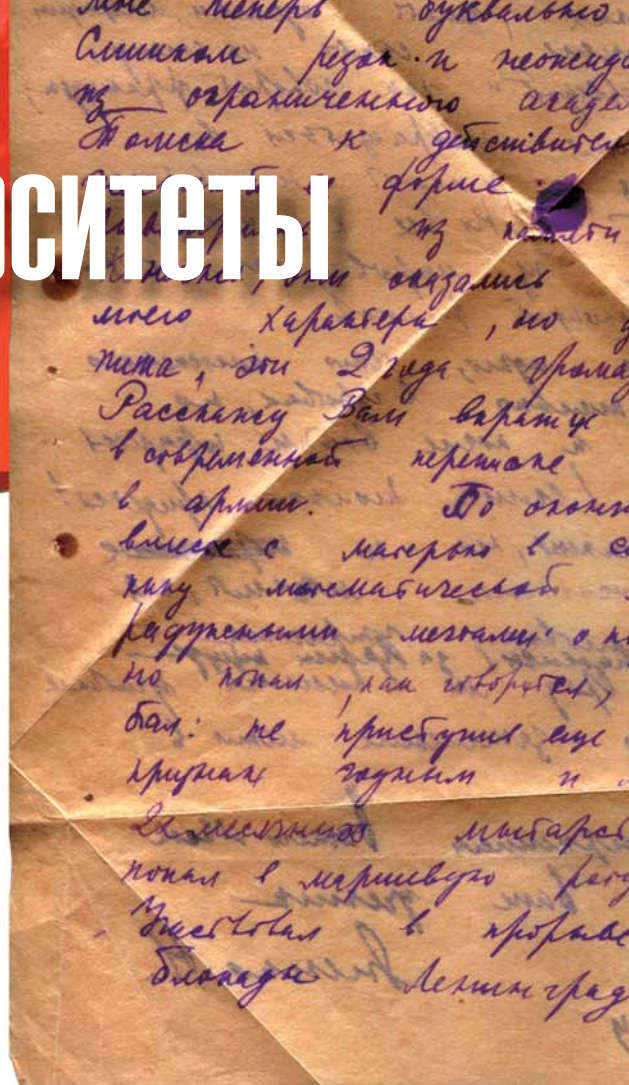 мне теперь буквально
Слишком резок и неожида
из ограниченного акаде
Томска к действител
ситеты
форме
из памяти
Конечно, они оказались
моего характера, но д
пита, эти 2 года грома
Расскажу Вам вкратце
в современной переписке
в армии. По оконч
вместе с матерью в С
математической
радужными мечтами о
но попал, как говорится,
бал: не приступив еще
признан годным и
2х месячных мытарст
попал в маршевую роту
Участвовал в прорыве
блокады Ленинград